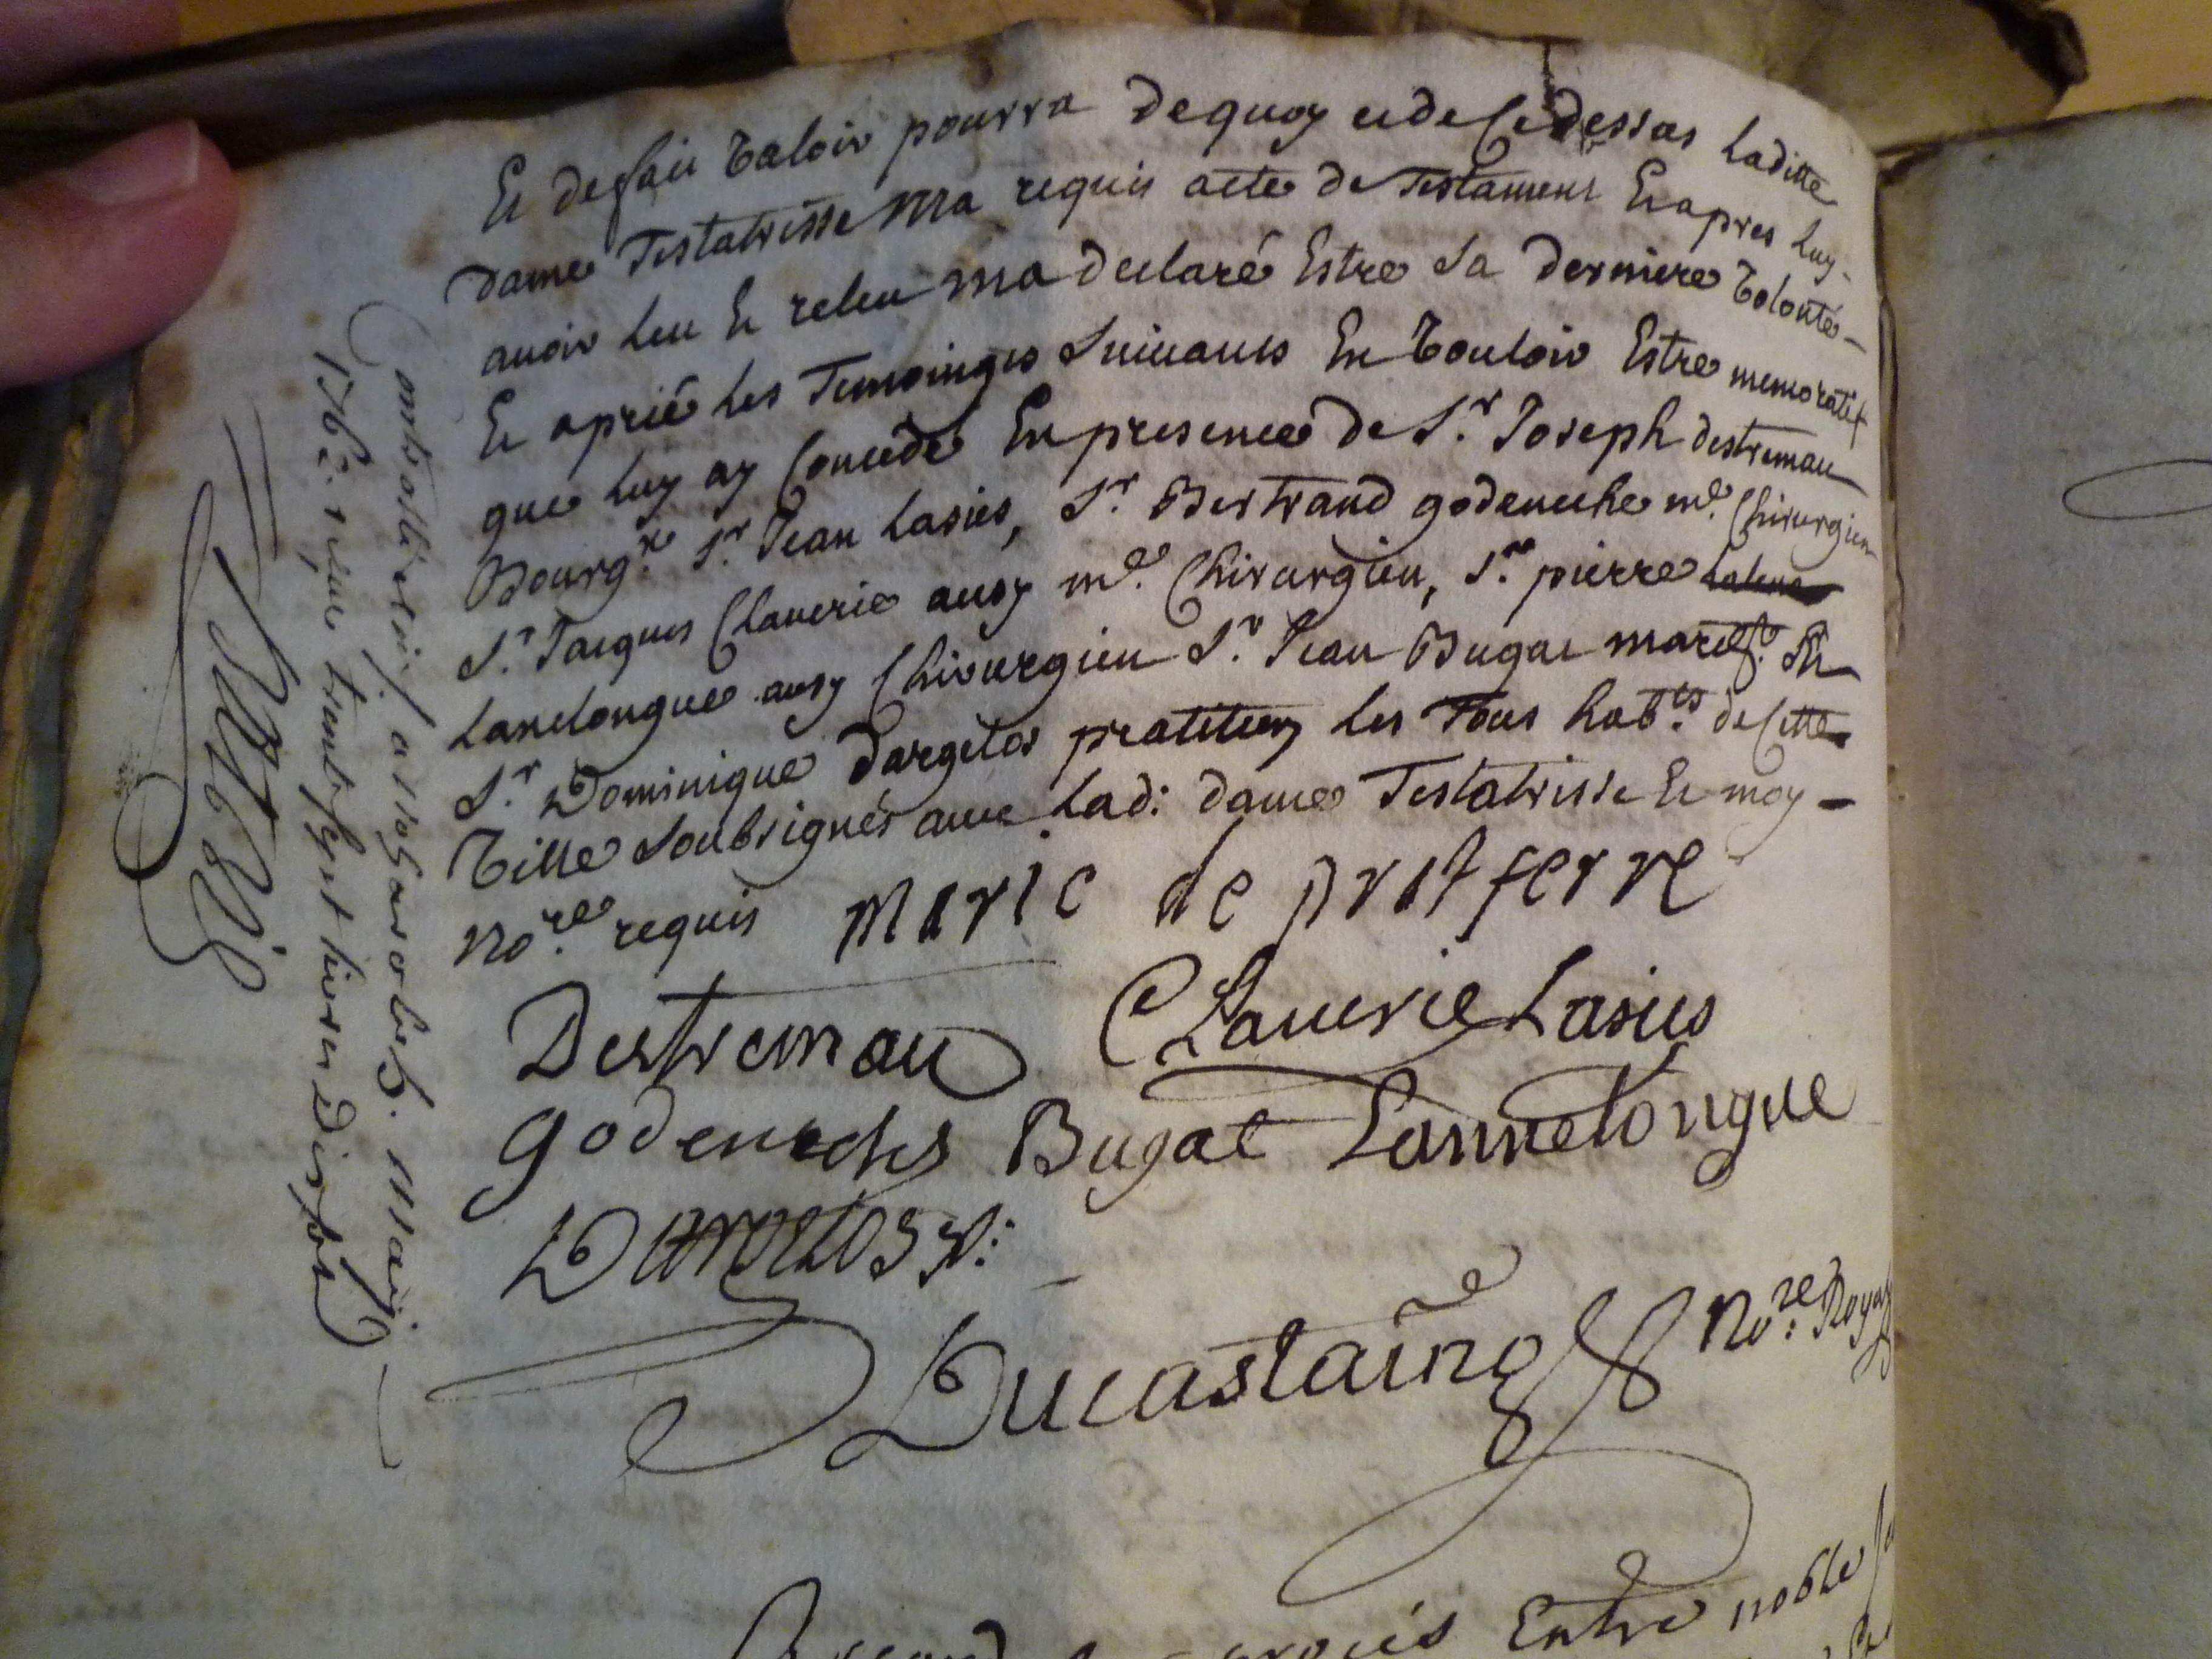 Et de fait valoir pourra de quoy et de Ce dessus laditte
dame Testatrisse ma requis acte de Testament Et apres luy
avoir leu Et releu ma declaré Estre sa derniere volonté
Et a prié les Temoinges suivants En vouloir Estre memoratif
que luy ay Concedé En presence de Sr. Joseph destremau
Bourgs. Sr. Jean lasies, Sr. Bertrand godeneche me. Chirurgien
Sr. Jacques Claverie ausy me. Chirurgien, Sr. pierre
lanelongue ausy Chirurgien Sr. Jean Bugat
Sr. Dominique dargelos pratitien les Tous habts. de Cette
ville soubsignés avec lad: dame Testatrisse Et moy
Nore. requis Marie de pratferre
Destremau Claverie Lasies
godeneche Bugat Lannelongue
Dargelos
Ducastaing Nore. Royal
procés Entre noble
mai
1762. reçu trente sept livres dix sols